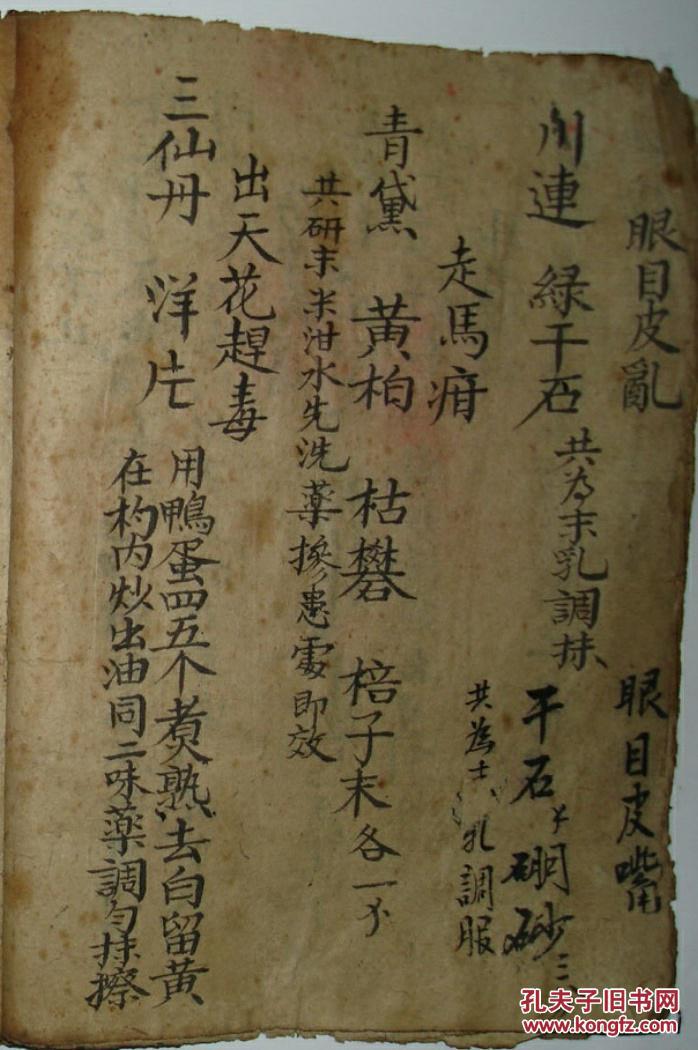 眼目皮亂
川連 綠干石 共為末乳調抹
眼目皮嘴
干石 硼砂 三
共為 乳調服
走馬疳
青黛 黃柏 枯礬 棓子末各一分
共研末米泔水先洗藥摻患處即效
出天花趕毒
三仙丹 洋片
用鴨蛋四五个煮熟去白留黃
在杓內炒出油同二味藥調勻抹擦
孔夫子旧书网
www.kongfz.com